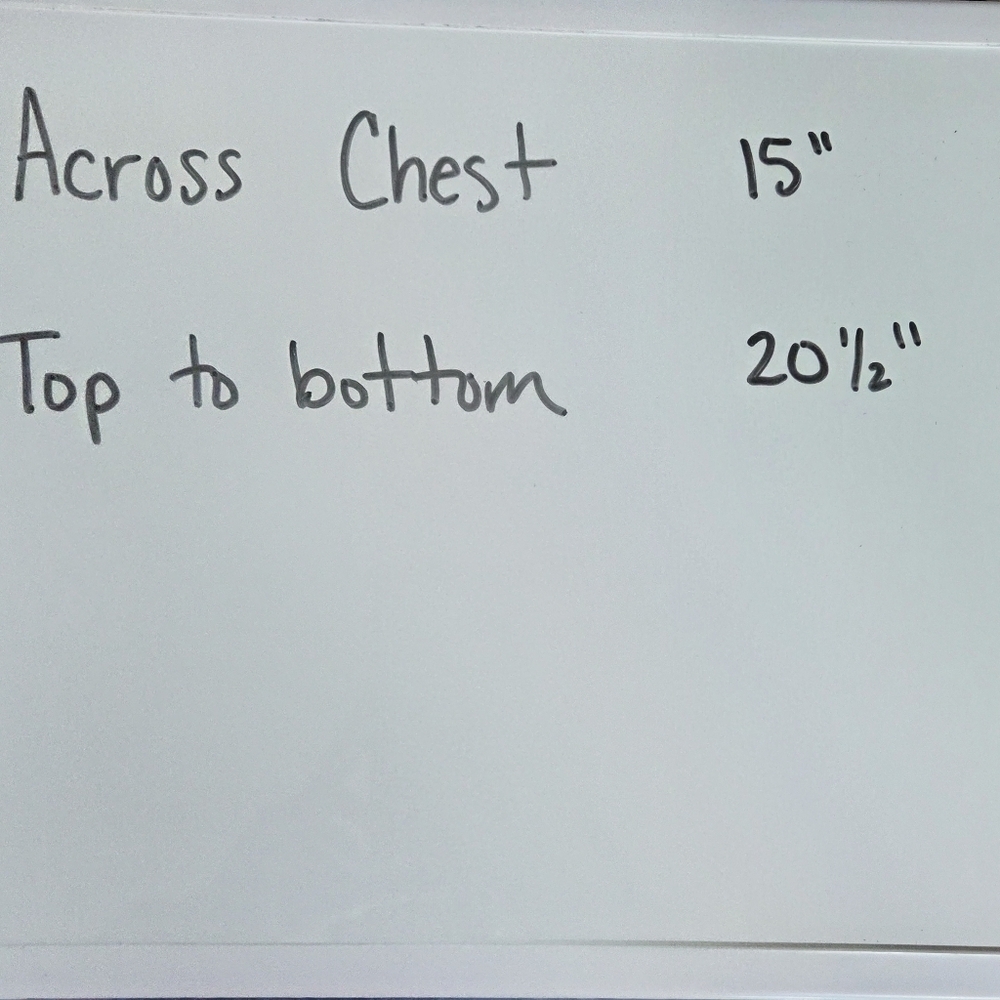 Across Chest 15"
Top to bottom 20 1/2"